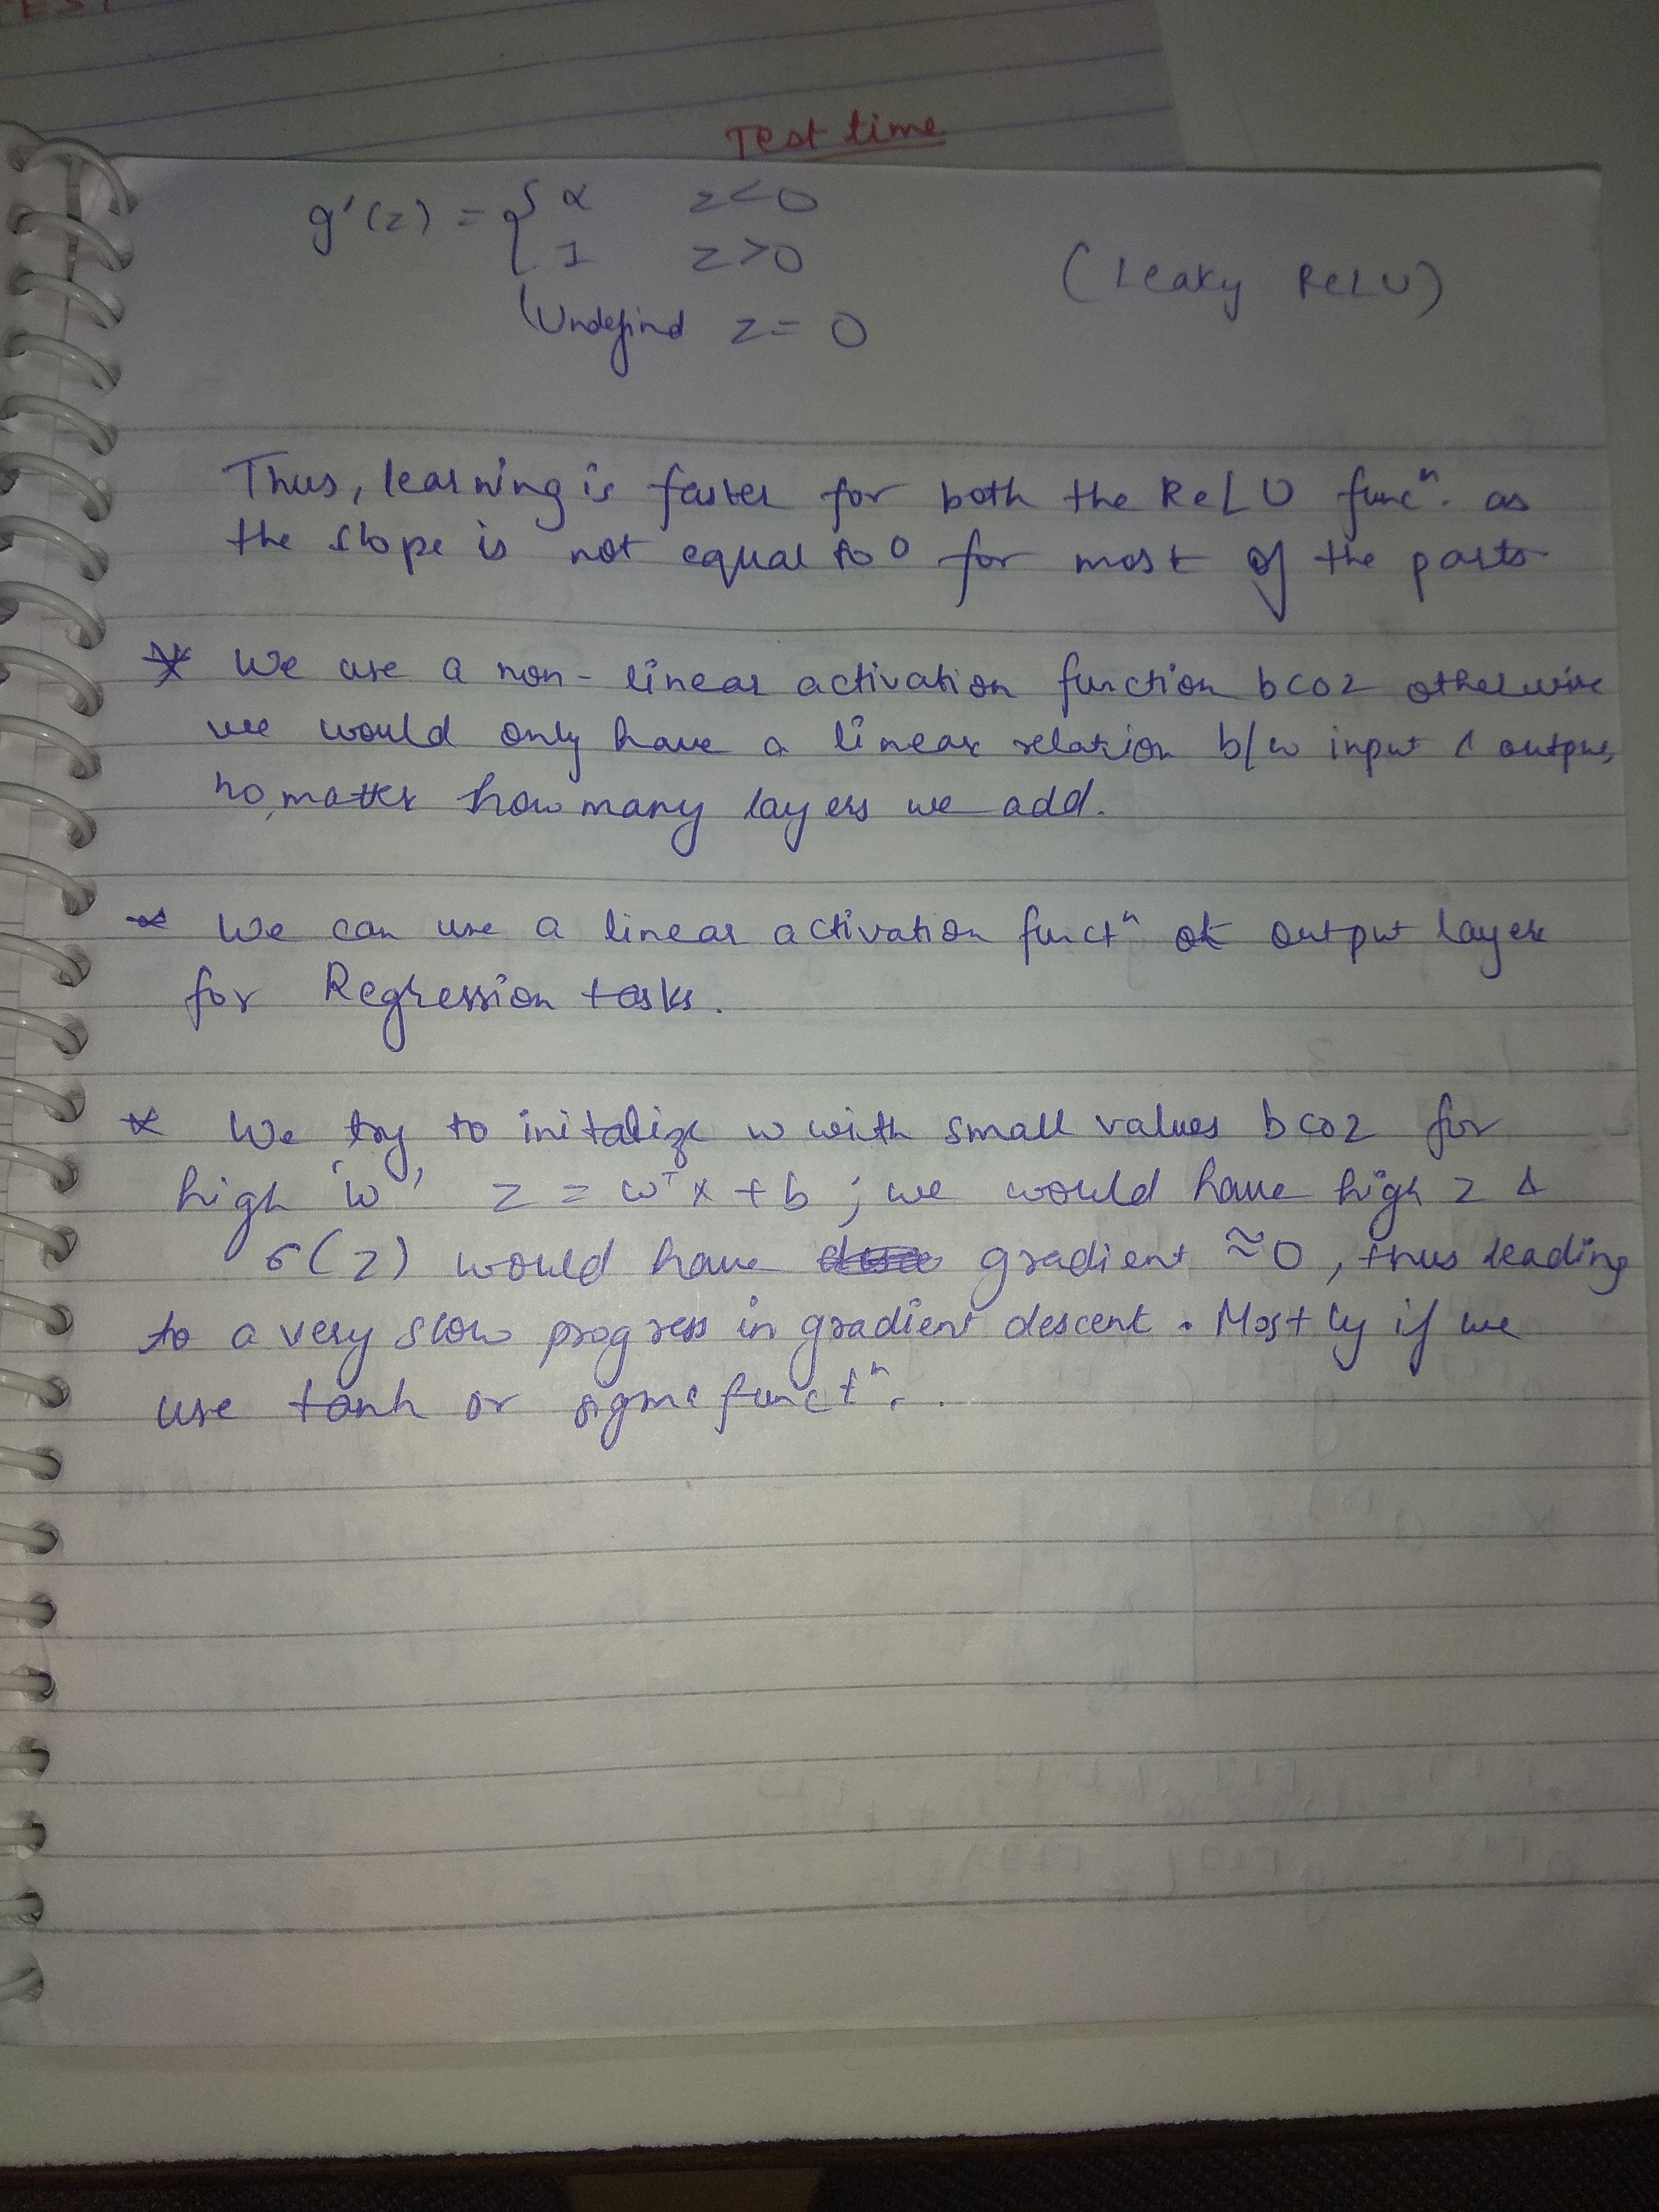 Test time
g'(z) = { α z<0
1 z>0
Undefind z = 0
(Leaky ReLU)
Thus, learning is faster for both the ReLU funcⁿ. as
the slope is not equal to 0 for most of the parts
* We use a non-linear activation function bcoz otherwise
we would only have a linear relation b/w input & output,
no matter how many layers we add.
* We can use a linear activation functⁿ at output layer
for Regression tasks.
* We try to initalize w with small values bcoz for
high 'w' z = wᵀx + b ; we would have high z &
σ(z) would have gradient ≈0, thus leading
to a very slow progress in gradient descent. Mostly if we
use tanh or sigma functⁿ.